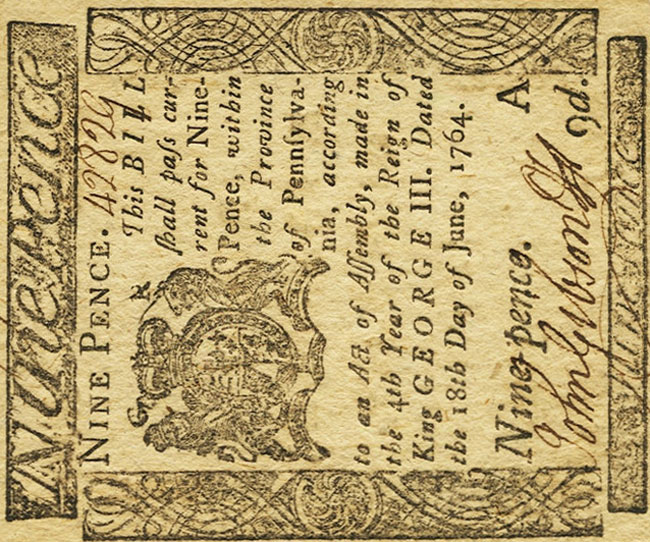 Nine Pence
NINE PENCE. 42829
G R
This BILL
ſhall paſs cur-
rent for Nine-
Pence, within
the Province
of Pennſylva-
nia, according
to an Act of Aſſembly, made in
the 4th Year of the Reign of
King GEORGE III. Dated
the 18th Day of June, 1764.
Nine-pence. A
John Gibson 9d.